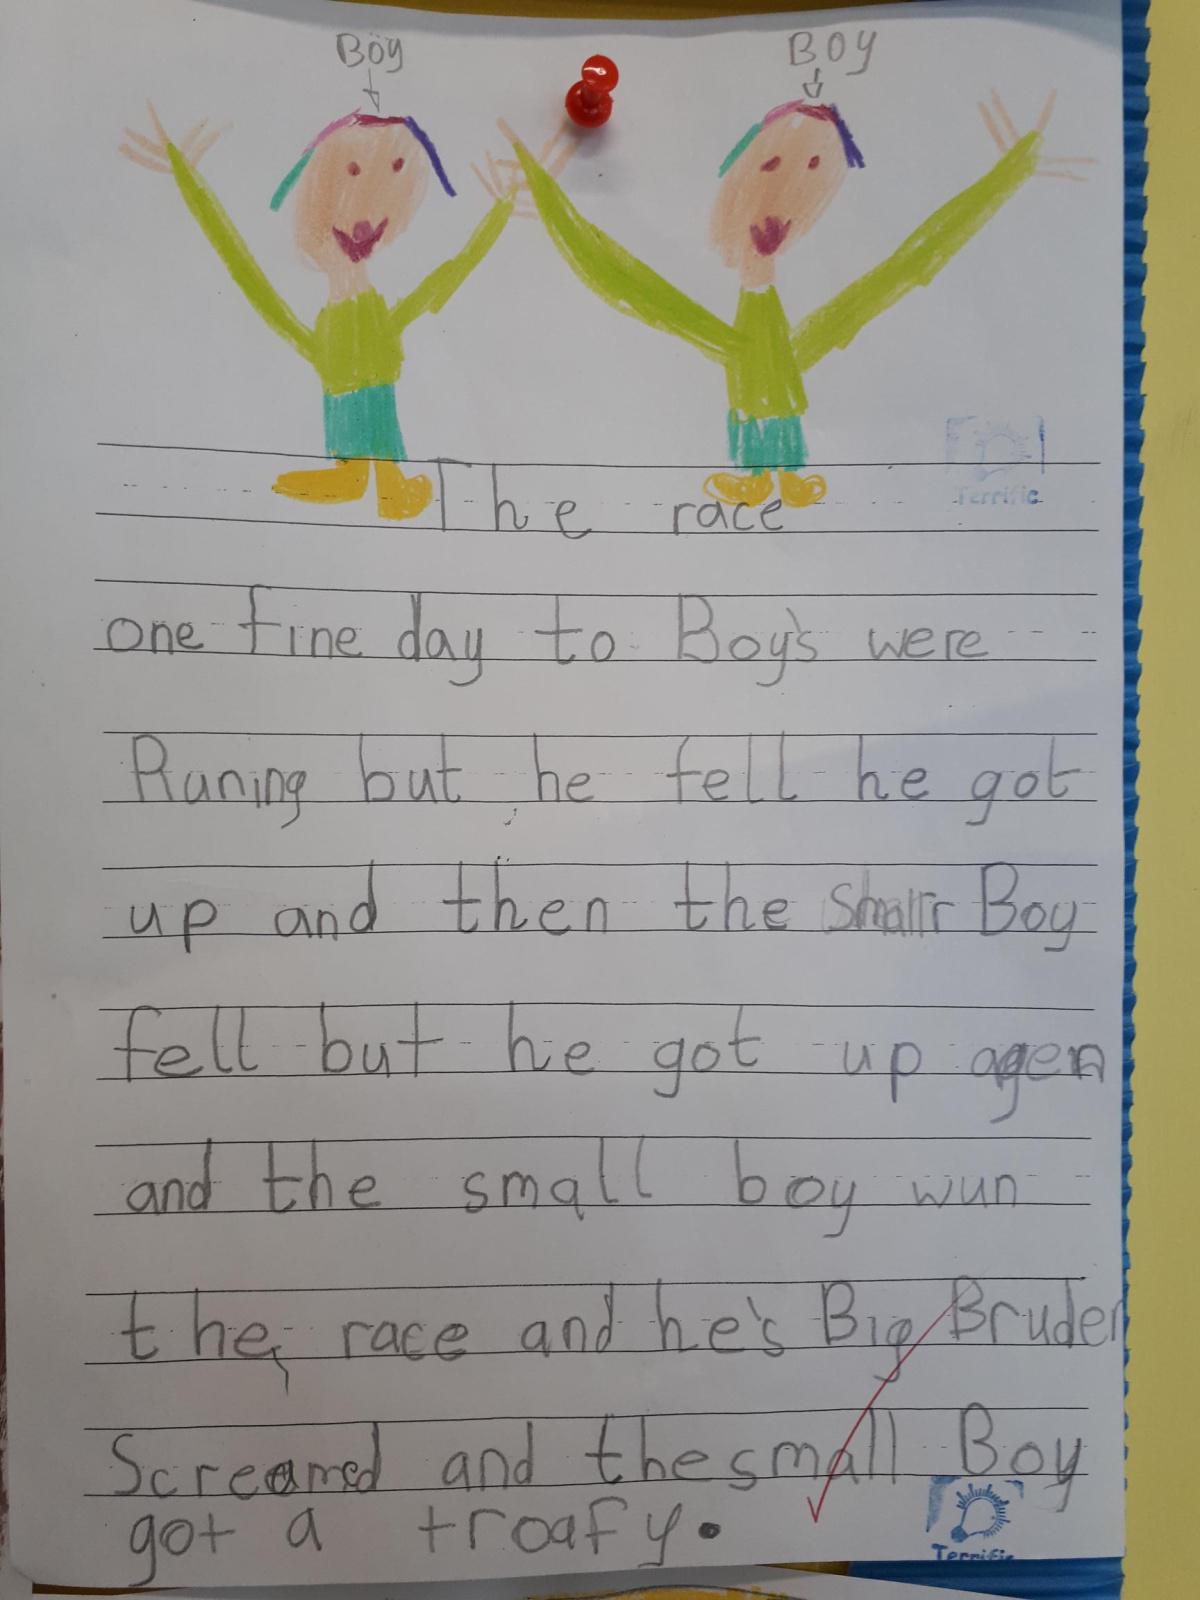 Boy
BOY
The race
Terrific
one fine day to Boy's were
Runing but he fell he got
up and then the Smallr Boy
fell but he got up agen
and the small boy wun
the race and he's Big Bruder
Screamed and the small Boy
got a troafy.
Terrific